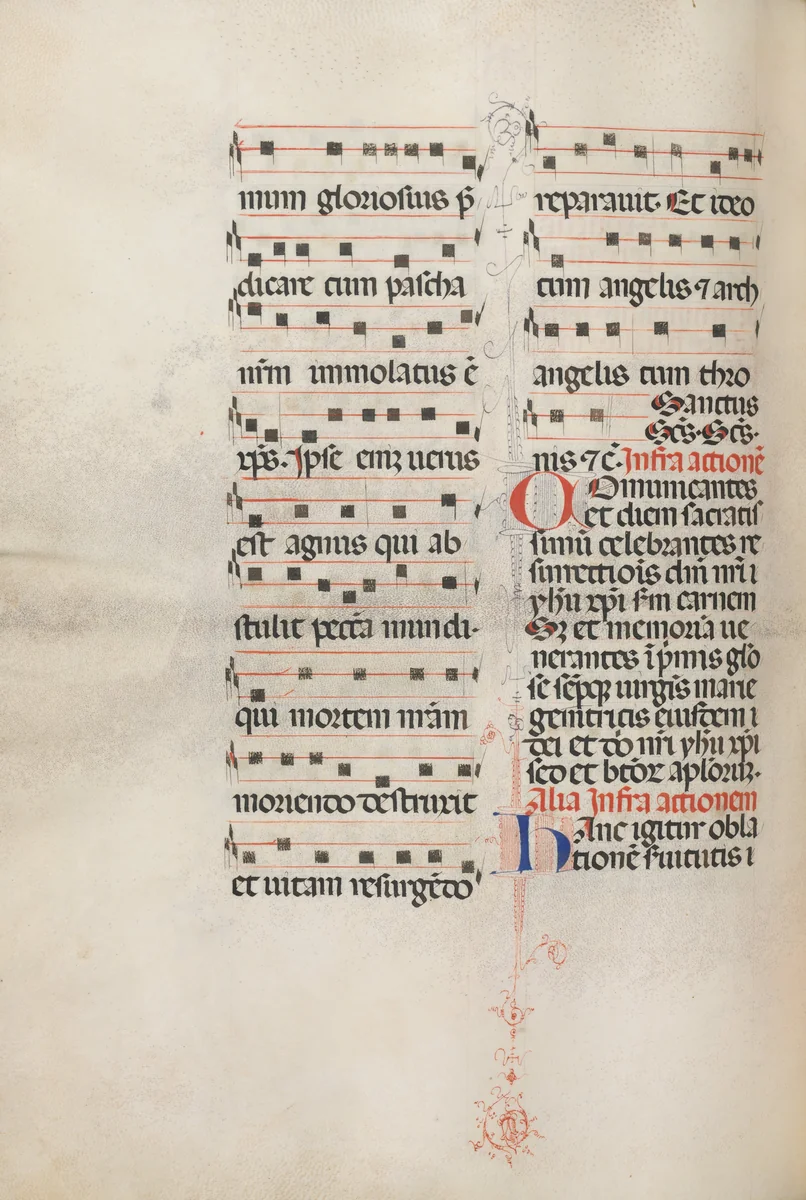 mum gloriosius p̄
dicare cum pascha
nr̄m immolatus ē
xp̄s. Ipse eniꝫ uerus
est agnus qui ab
stulit pecc̄a mundi.
qui mortem nr̄am
moriendo destruxit
et uitam resurgēdo
reparauit. Et ideo
cum angelis ⁊ arch
angelis cum thro
Sanctus
Sc̄s. Sc̄s.
nis ⁊c̄. Infra actionē
Comunicantes
et diem sacratis
simū celebrantes re
surrectiōis dn̄i nr̄i i
yh̄u xp̄i s̄m carnem
Sꝫ et memoria ue
nerantes ī p̄mis glo
se sēpqꝫ uirgīs marie
genitricis eiusdem i
dei et dō nr̄i yh̄u xp̄i
sed et bt̄oꝝ ap̄loruꝫ.
Alia Infra actionem
Hanc igitur obla
tionē s̄uitutis i